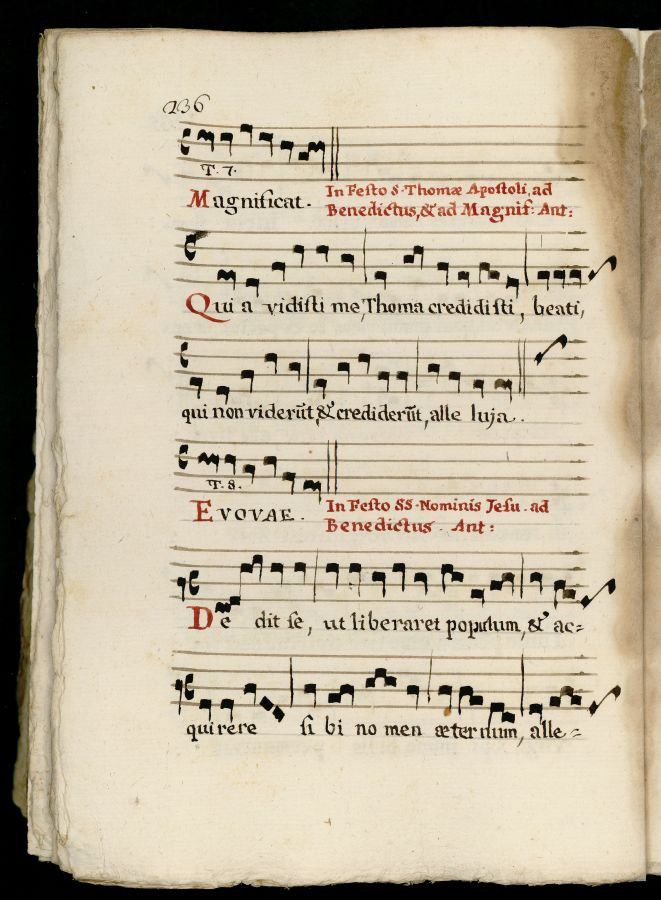 236
T. 7.
Magnificat. In Festo S. Thomæ Apostoli, ad
Benedictus, & ad Magnif: Ant:
Quia vidisti me, Thoma credidisti, beati,
qui non viderūt, & crediderūt, alle luja.
T. 8.
EVOVAE. In Festo SS. Nominis Jesu. ad
Benedictus. Ant:
De dit se, ut liberaret populum, & ac=
quirere si bi no men æternum, alle=